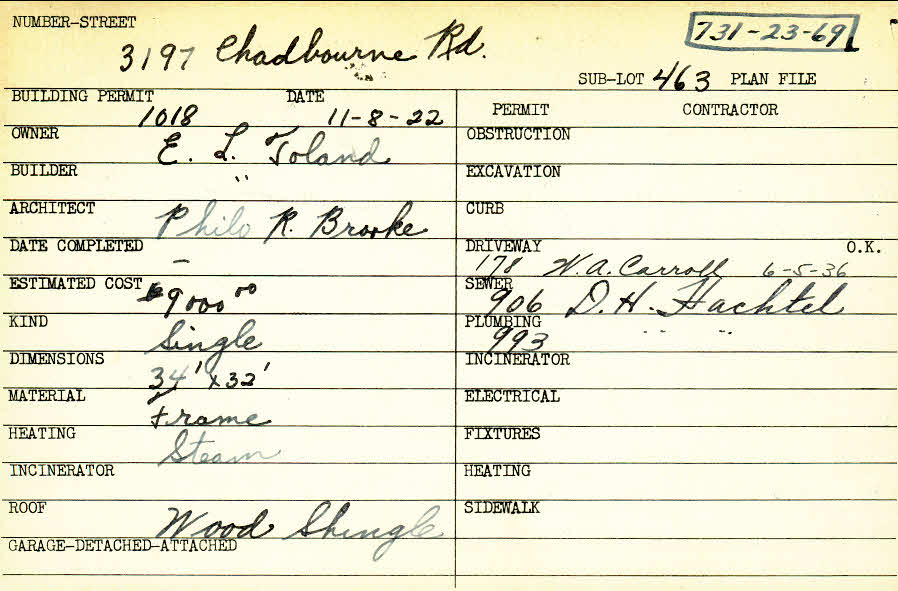 NUMBER-STREET
3197 Chadbourne Rd.
731-23-69
SUB-LOT 463 PLAN FILE
BUILDING PERMIT DATE
1018 11-8-22
OWNER E. L. Toland
BUILDER "
ARCHITECT Philo R. Brooke
DATE COMPLETED —
ESTIMATED COST $9000 00
KIND Single
DIMENSIONS 34' x 32'
MATERIAL Frame
HEATING Steam
INCINERATOR
ROOF Wood Shingle
GARAGE-DETACHED-ATTACHED
PERMIT CONTRACTOR
OBSTRUCTION
EXCAVATION
CURB
DRIVEWAY O.K.
178 W. A. Carroll 6-5-36
SEWER
906 D. H. Hachtel
PLUMBING
993 " "
INCINERATOR
ELECTRICAL
FIXTURES
HEATING
SIDEWALK